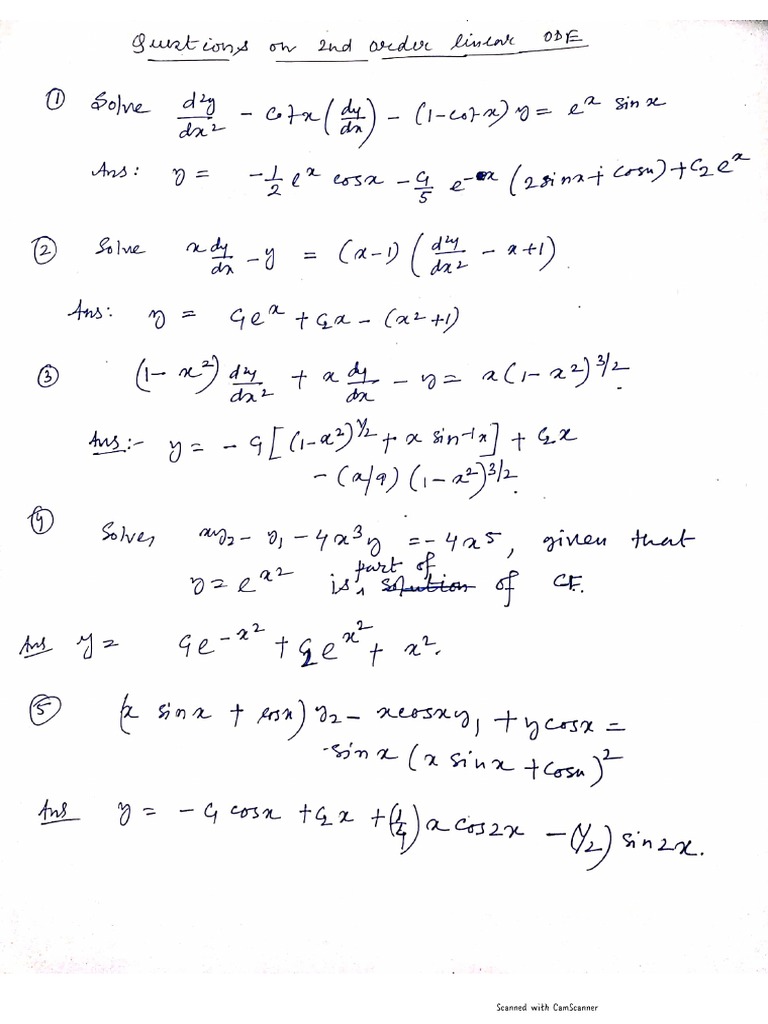 Questions on 2nd order linear ODE
① Solve d²y/dx² - cotx (dy/dx) - (1-cotx) y = eˣ sinx
Ans: y = -1/2 eˣ cosx - C₁/5 e⁻ˣ (2sinx + cosx) + C₂eˣ
② Solve x dy/dx - y = (x-1) (d²y/dx² - x+1)
Ans: y = C₁eˣ + C₂x - (x²+1)
③ (1-x²) d²y/dx² + x dy/dx - y = x(1-x²)^3/2.
Ans:- y = - C₁[(1-x²)^1/2 + x sin⁻¹x] + C₂x
- (x/9) (1-x²)^3/2.
④ Solve, xy₂ - y₁ - 4x³y = -4x⁵, given that
y = e^x² is part of solution of CF.
Ans y = C₁e^-x² + C₂e^x² + x².
⑤ (x sinx + cosx) y₂ - xcosxy₁ + ycosx =
sinx (x sinx + cosx)²
Ans y = - C₁ cosx + C₂x + (1/4) x cos2x - (1/2) sin2x.
Scanned with CamScanner